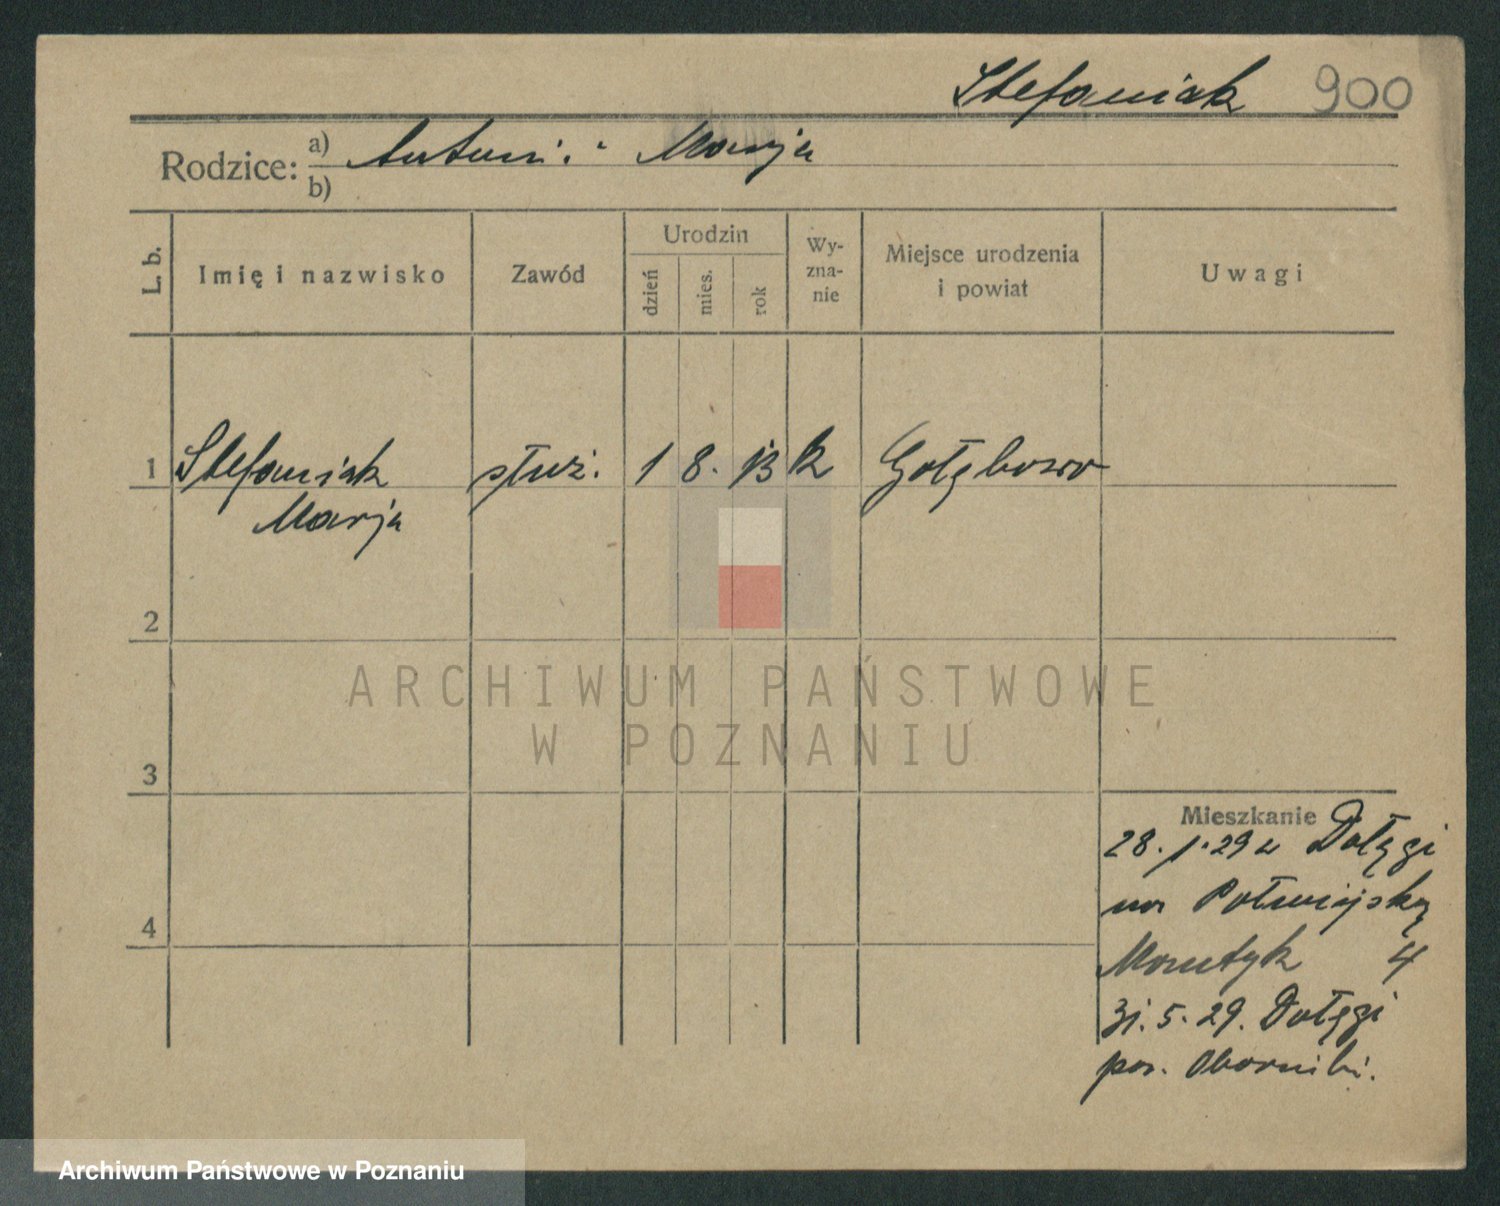 Stefaniak 900
Rodzice: a) Antoni i Marja
b)
L. b. Imię i nazwisko Zawód Urodzin dzień mies. rok Wyznanie Miejsce urodzenia i powiat Uwagi
1 Stefaniak służ. 1 8. 13 k Gołębowo
Marja
2
ARCHIWUM PAŃSTWOWE
W POZNANIU
3
Mieszkanie
28. 1. 29 z Dołęgi
na Półwiejską
4
Mantyk 4
31. 5. 29. Dołęgi
pow. Oborniki.
Archiwum Państwowe w Poznaniu